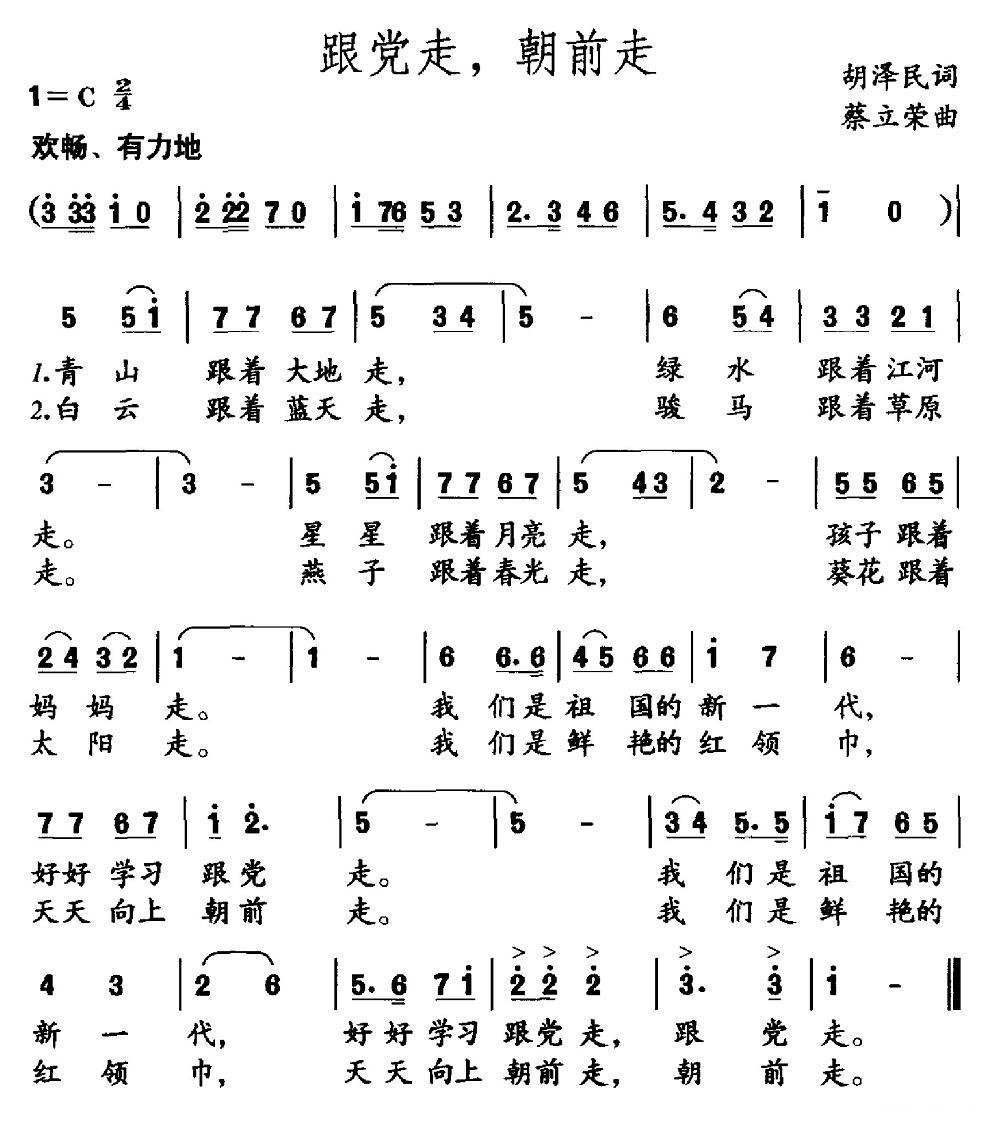 跟党走，朝前走
胡泽民词
1=C 2/4
蔡立荣曲
欢畅、有力地
(3̇ 3̇3̇ 1̇ 0 | 2̇ 2̇2̇ 7 0 | 1̇ 76 5 3 | 2. 3 4 6 | 5. 4 3 2 | 1 0 )|
5 5 1̇ | 7 7 6 7 | 5 3 4 | 5 - | 6 5 4 | 3 3 2 1 |
1.青 山 跟着 大地 走， 绿 水 跟着 江河
2.白 云 跟着 蓝天 走， 骏 马 跟着 草原
3 - | 3 - | 5 5 1̇ | 7 7 6 7 | 5 4 3 | 2 - | 5 5 6 5 |
走。 星 星 跟着 月亮 走， 孩子 跟着
走。 燕 子 跟着 春光 走， 葵花 跟着
2 4 3 2 | 1 - | 1 - | 6 6. 6 | 4 5 6 6 | 1̇ 7 | 6 - |
妈 妈 走。 我 们是 祖 国的 新 一 代，
太 阳 走。 我 们是 鲜 艳的 红 领 巾，
7 7 6 7 | 1̇ 2̇. | 5 - | 5 - | 3 4 5. 5 | 1̇ 7 6 5 |
好好 学习 跟党 走。 我 们是 祖 国的
天天 向上 朝前 走。 我 们是 鲜 艳的
4 3 | 2 6 | 5. 6 7 1̇ | 2̇ 2̇ 2̇ | 3̇. 3̇ | 1̇ - ‖
> > > > >
新 一 代， 好 好 学习 跟党 走， 跟 党 走。
红 领 巾， 天 天 向上 朝前 走， 朝 前 走。